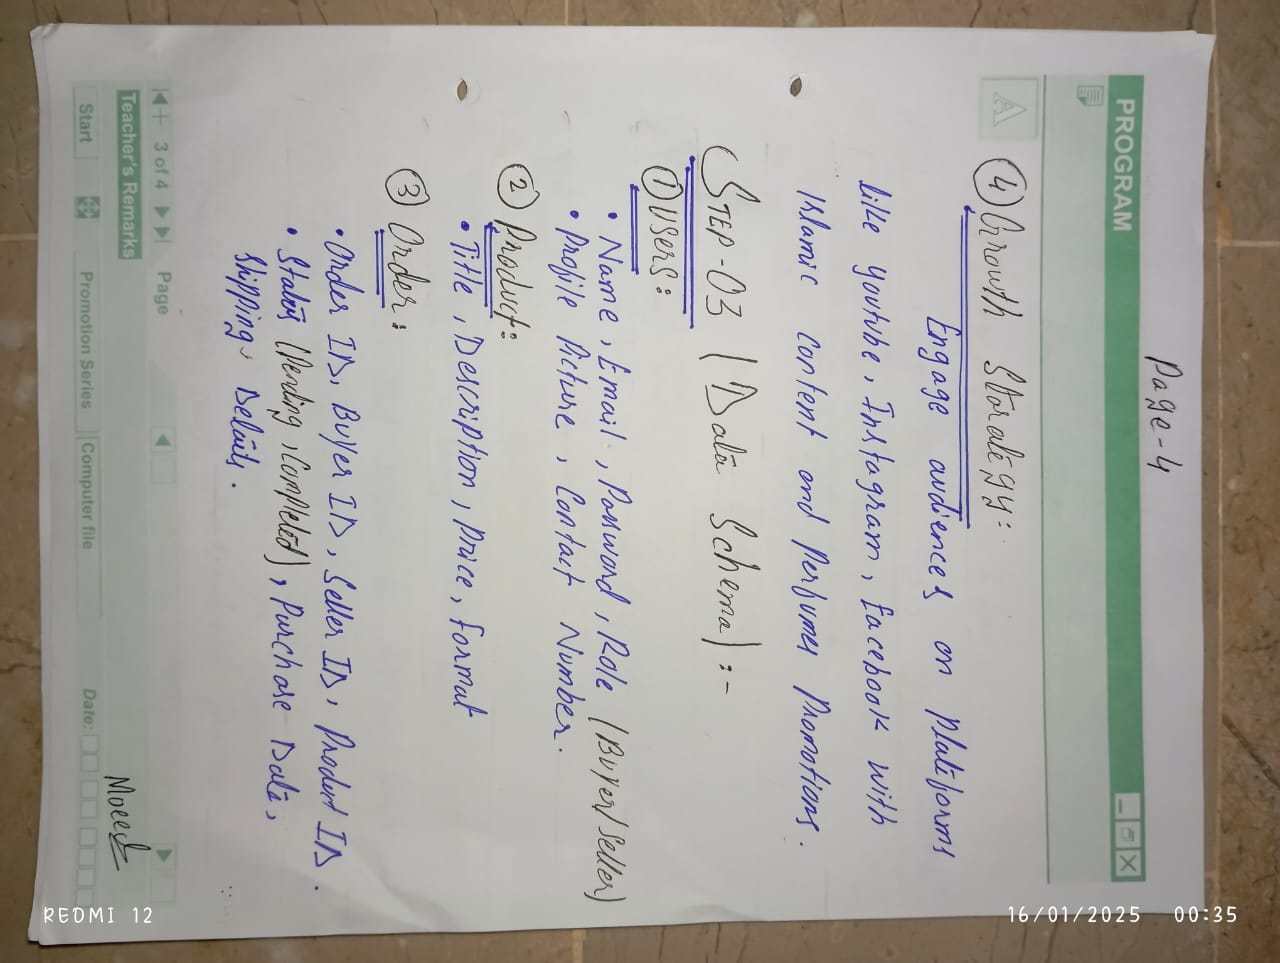 Page-4
PROGRAM
A
④ Growth Stratēgy:
Engage audiences on Platēforms
like youtube, Instagram, Facebook with
Islamic content and Perfumes Promotions.
STEP-03 (Data Schema):-
① Users:
• Name, Email, Password, Role (Buyer/Seller)
• Profile Picture, Contact Number.
② Product:
• Title, Description, Price, format
③ Order:
• Order ID, Buyer ID, Seller ID, Product ID.
• Status (Pending, Completed), Purchase Date,
Shipping Details.
3 of 4 Page
Teacher's Remarks
Moeed
Start Promotion Series Computer file Date:
REDMI 12
16/01/2025 00:35